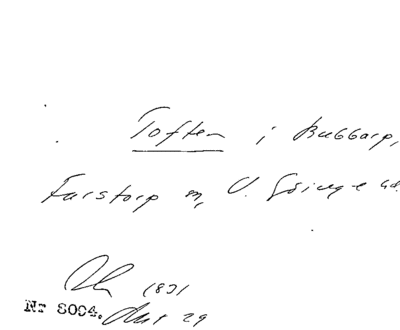 Toften i Bubbarp,
Farstorp sn, V. Göinge hd.
1831
Nr 8004. Akt 29